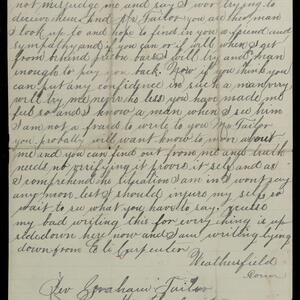 not missjudge me and say I was trying to
deceive them. And Mr. Tailor you are the man
I look up to and hope to find in you a friend and
sympathy and if you can or if will when I get
from behind prison bars I will try and man
enough to pay you back. Now if you think you
can put any confidence in such a man
will try me, unless you have made me
feel so and I know a man when I see him
I am not a fraid to write to you Mr Tailor
you probably will want to know more about
me and you can find out from me and truth
needs no verifying it proves it self and as
I comprehend the situation I am in I wont say
any more lest I should injure my self so
wait to see what you have to say. excuse
my bad writing this for every thing is up
side down here now and I am writing lying
down from E. H. Carpenter
Weathersfield
Conn
Rev Graham Tailor